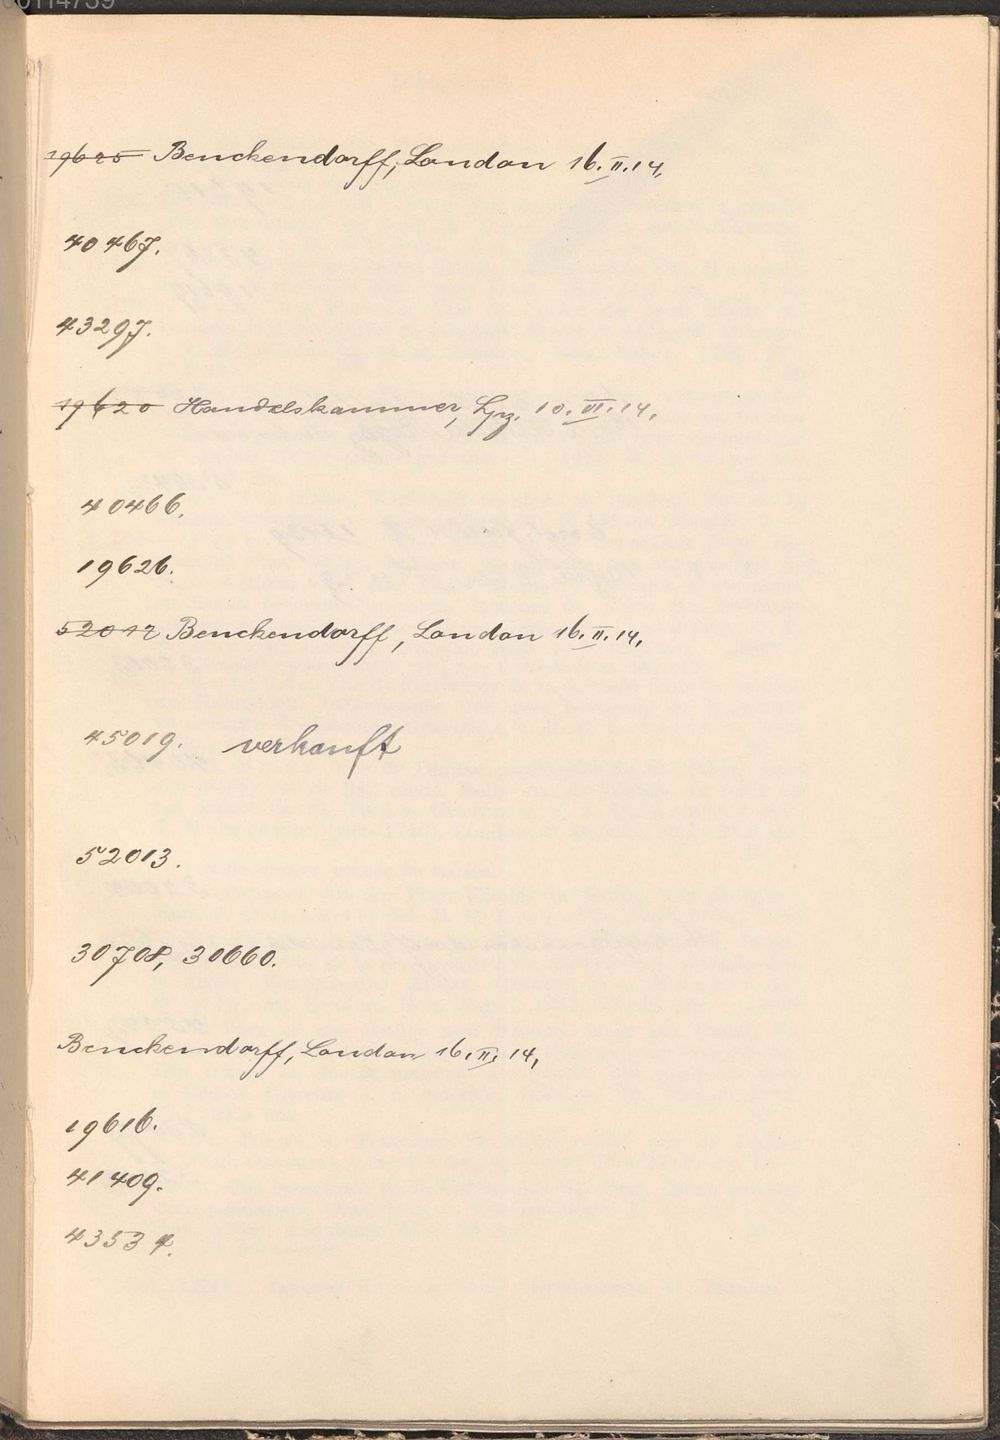 19625 Benckendorff, London 16.II.14.
40467.
43297.
19620 Handelskammer, Lpz. 10.VI.14.
40466.
19626.
52012 Benckendorff, London 16.II.14.
45019. verkauft
52013.
30708, 30660.
Benckendorff, London 16.II.14.
19616.
41409.
43534.